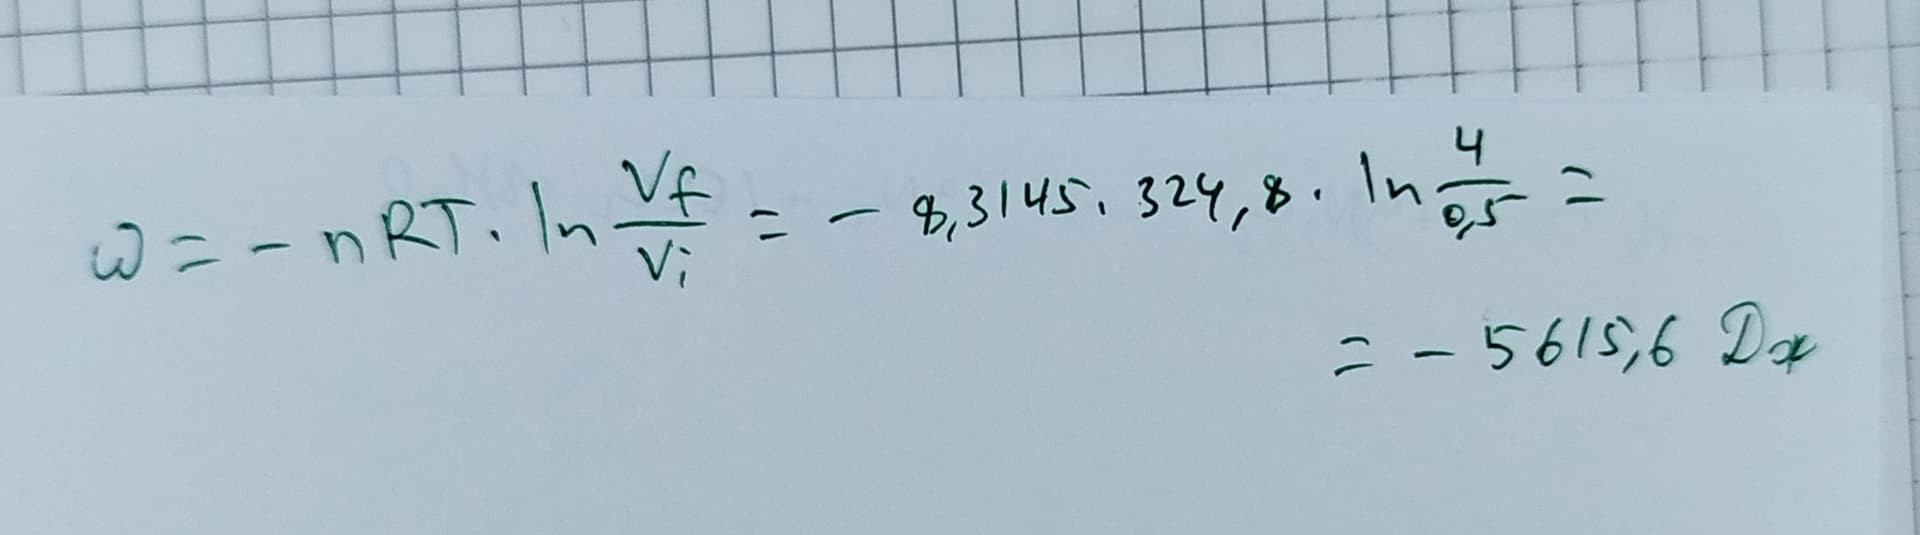 ω = - nRT · ln Vf/Vi = - 8,3145 · 324,8 · ln 4/0,5 =
= - 5615,6 Дж